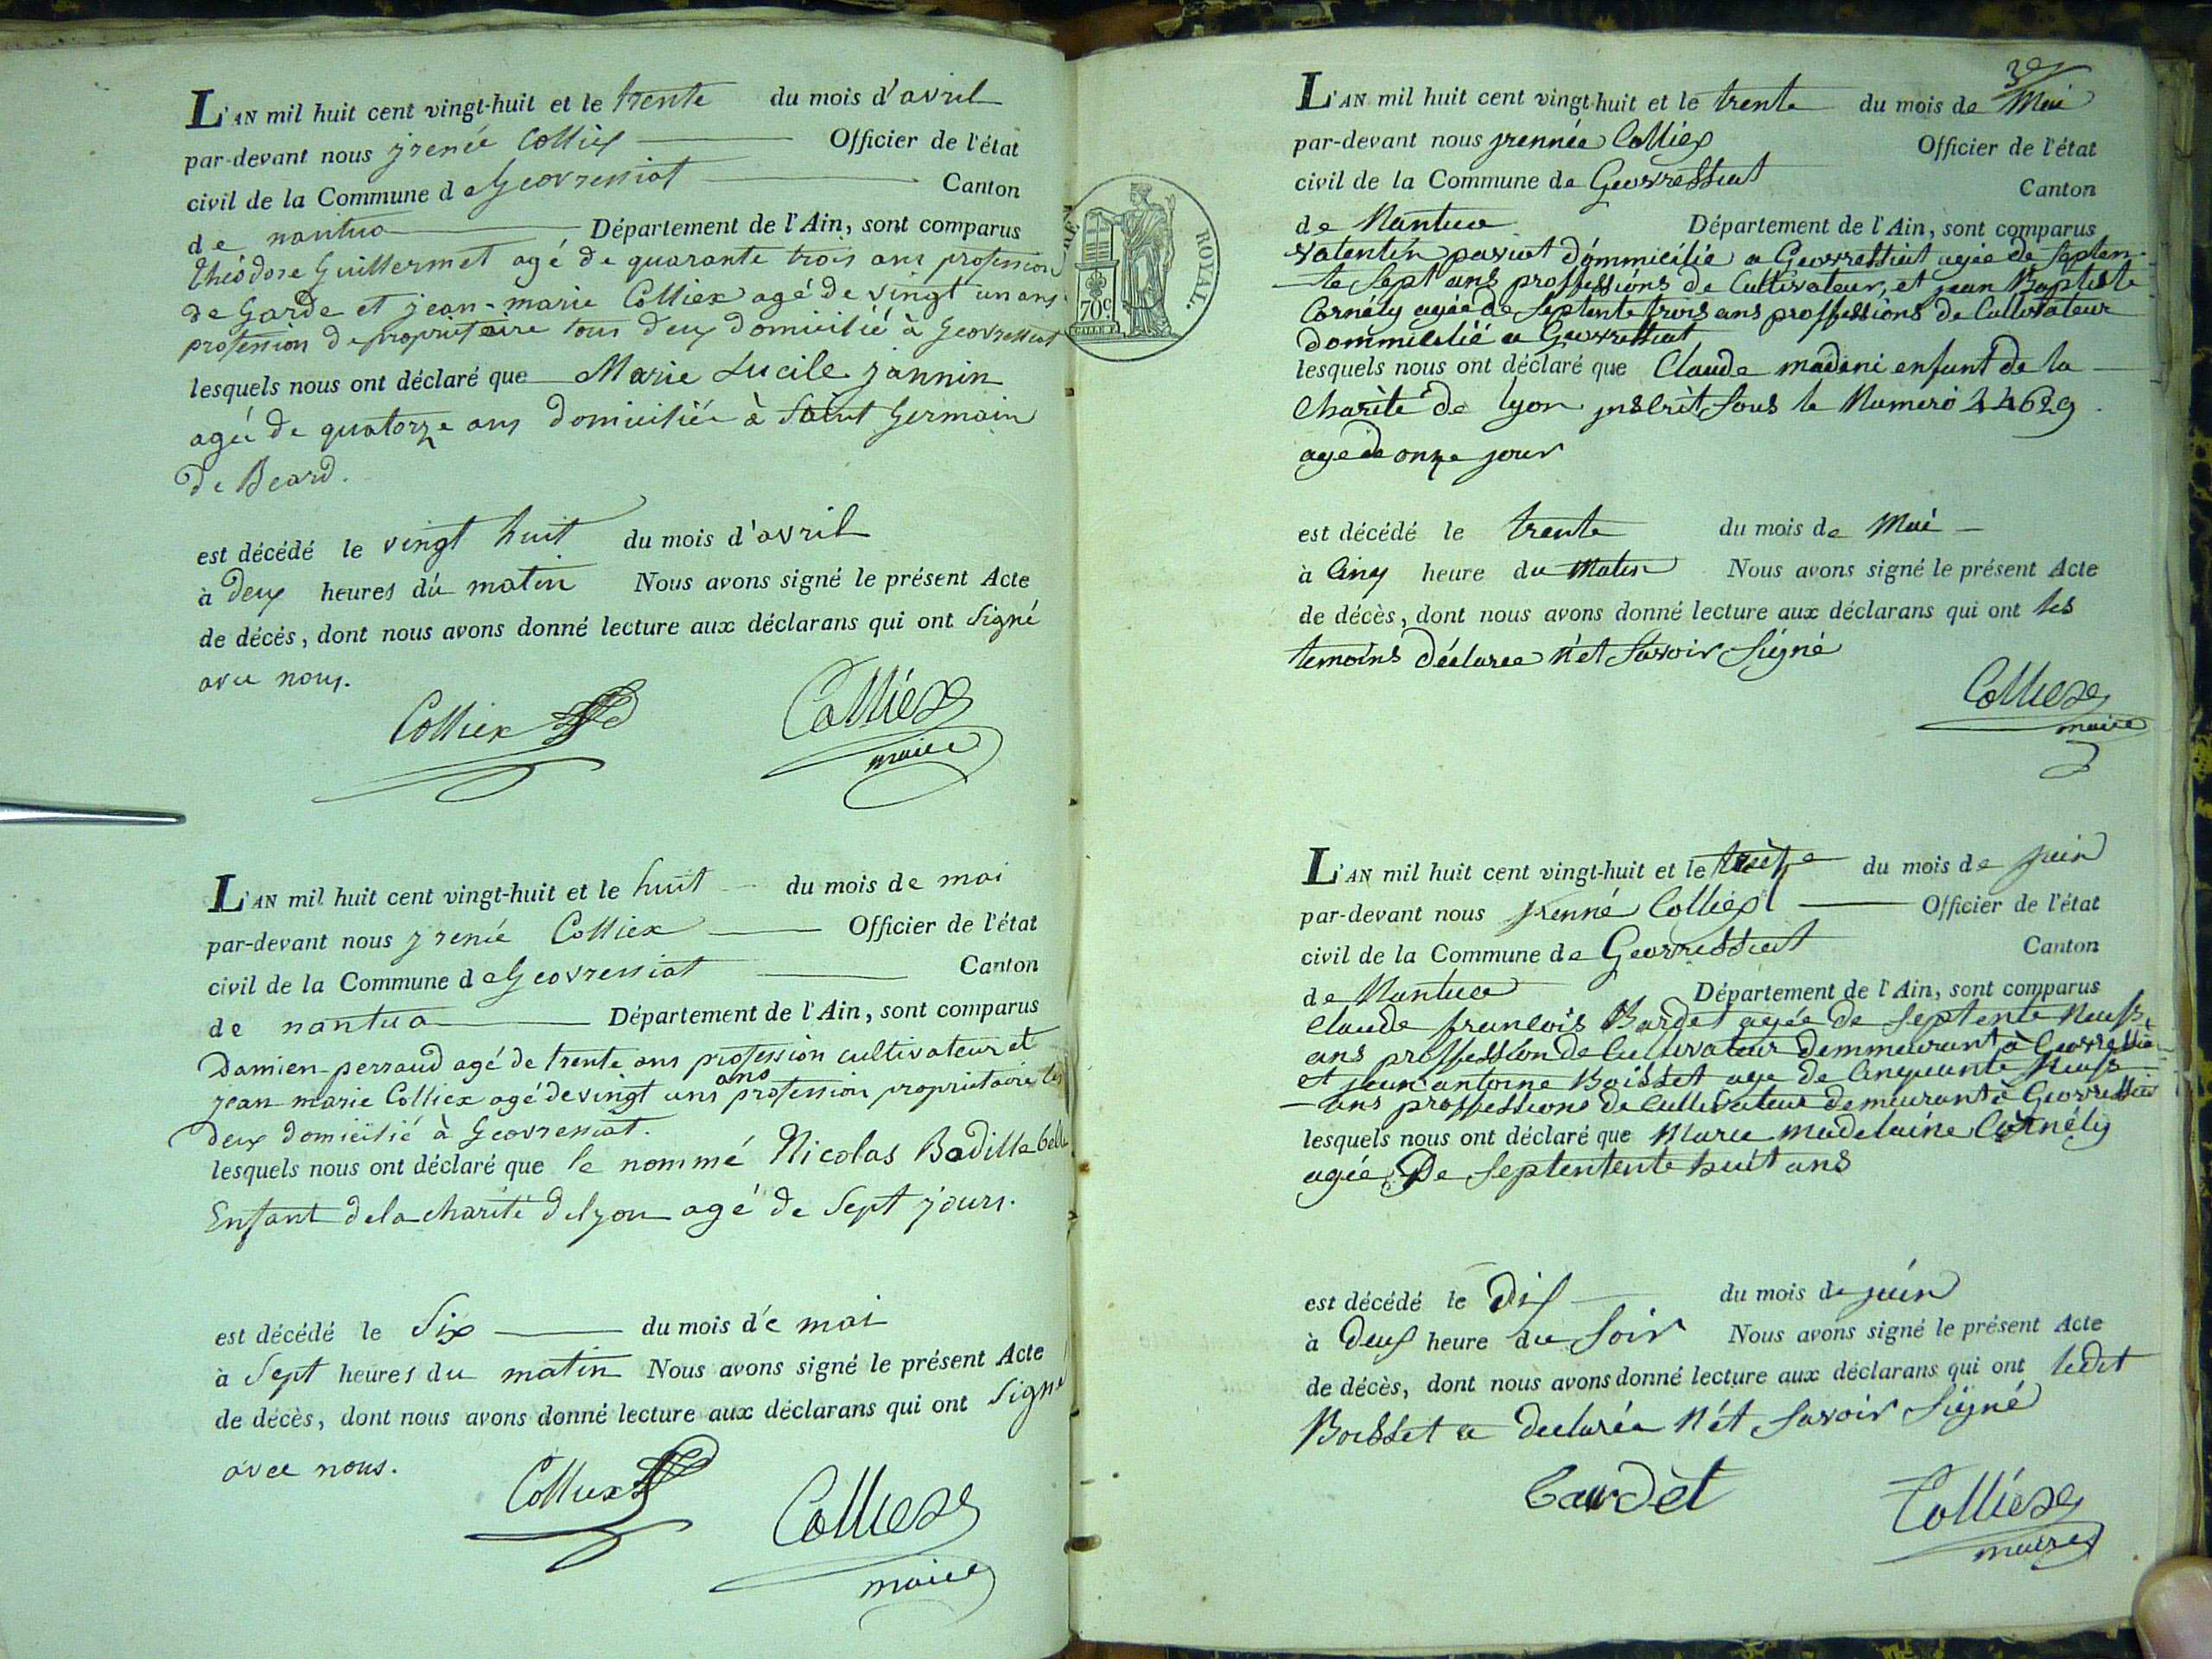 L'AN mil huit cent vingt-huit et le trente du mois d'avril
par-devant nous jrenée Colliex Officier de l'état
civil de la Commune de Geovressiat Canton
de nantua Département de l'Ain, sont comparus
théodore Guillermet agé de quarante trois ans profession
de Garde et jean-marie Colliex agé de vingt un ans
profession de propriétaire tous deux domicilié à Geovressiat
lesquels nous ont déclaré que Marie Lucile jannin
agée de quatorze ans domiciliée à Saint Germain
de Beard.
est décédé le vingt huit du mois d'avril
à deux heures du matin Nous avons signé le présent Acte
de décès, dont nous avons donné lecture aux déclarans qui ont signé
avec nous.
Colliex Colliex
maire
L'AN mil huit cent vingt-huit et le huit du mois de mai
par-devant nous jrenée Colliex Officier de l'état
civil de la Commune de Geovressiat Canton
de nantua Département de l'Ain, sont comparus
Damien perraud agé de trente ans profession cultivateur et
jean marie Colliex agé de vingt un ans profession propriétaire les
deux domicilié à Geovressiat.
lesquels nous ont déclaré que le nommé Nicolas Badille
Enfant de la charité de lyon agé de Sept jours.
est décédé le Six du mois de mai
à Sept heures du matin Nous avons signé le présent Acte
de décès, dont nous avons donné lecture aux déclarans qui ont Signé
avec nous.
Colliex Colliex
maire
ROYAL.
70c.
3e
L'AN mil huit cent vingt-huit et le trente du mois de Mai
par-devant nous jrennée Colliex Officier de l'état
civil de la Commune de Geovressiat Canton
de Nantua Département de l'Ain, sont comparus
valentin dommicilié a Geovressiat agée de septen-
te sept ans proffessions de Cultivateur, et jean Baptiste
Cornély agée de septente trois ans proffessions de Cultivateur
dommicilié a Geovressiat
lesquels nous ont déclaré que Claude madani enfant de la
Charité de lyon jnscrit sous le Numero 24629
age de onze jour
est décédé le trente du mois de Mai
à Cinq heure du Matin Nous avons signé le présent Acte
de décès, dont nous avons donné lecture aux déclarans qui ont les
temoins déclaree n'et savoir signé
Colliex
maire
L'AN mil huit cent vingt-huit et le treize du mois de juin
par-devant nous jrenné Colliex Officier de l'état
civil de la Commune de Geovressiat Canton
de Nantua Département de l'Ain, sont comparus
Claude francois Bardet agée de septente Neuf
ans proffession de Cultivateur demmeurant à Geovressia
et jean antoine Boisset age de Cinquante Neuf
ans proffessions de Cultivateur demeurant à Geovressiat
lesquels nous ont déclaré que Marie madelaine Cornély
agée De septentente huit ans
est décédé le dix du mois de juin
à deux heure du soir Nous avons signé le présent Acte
de décès, dont nous avons donné lecture aux déclarans qui ont ledit
Boisset a declarée n'ét savoir signé
bardèt Colliex
maire